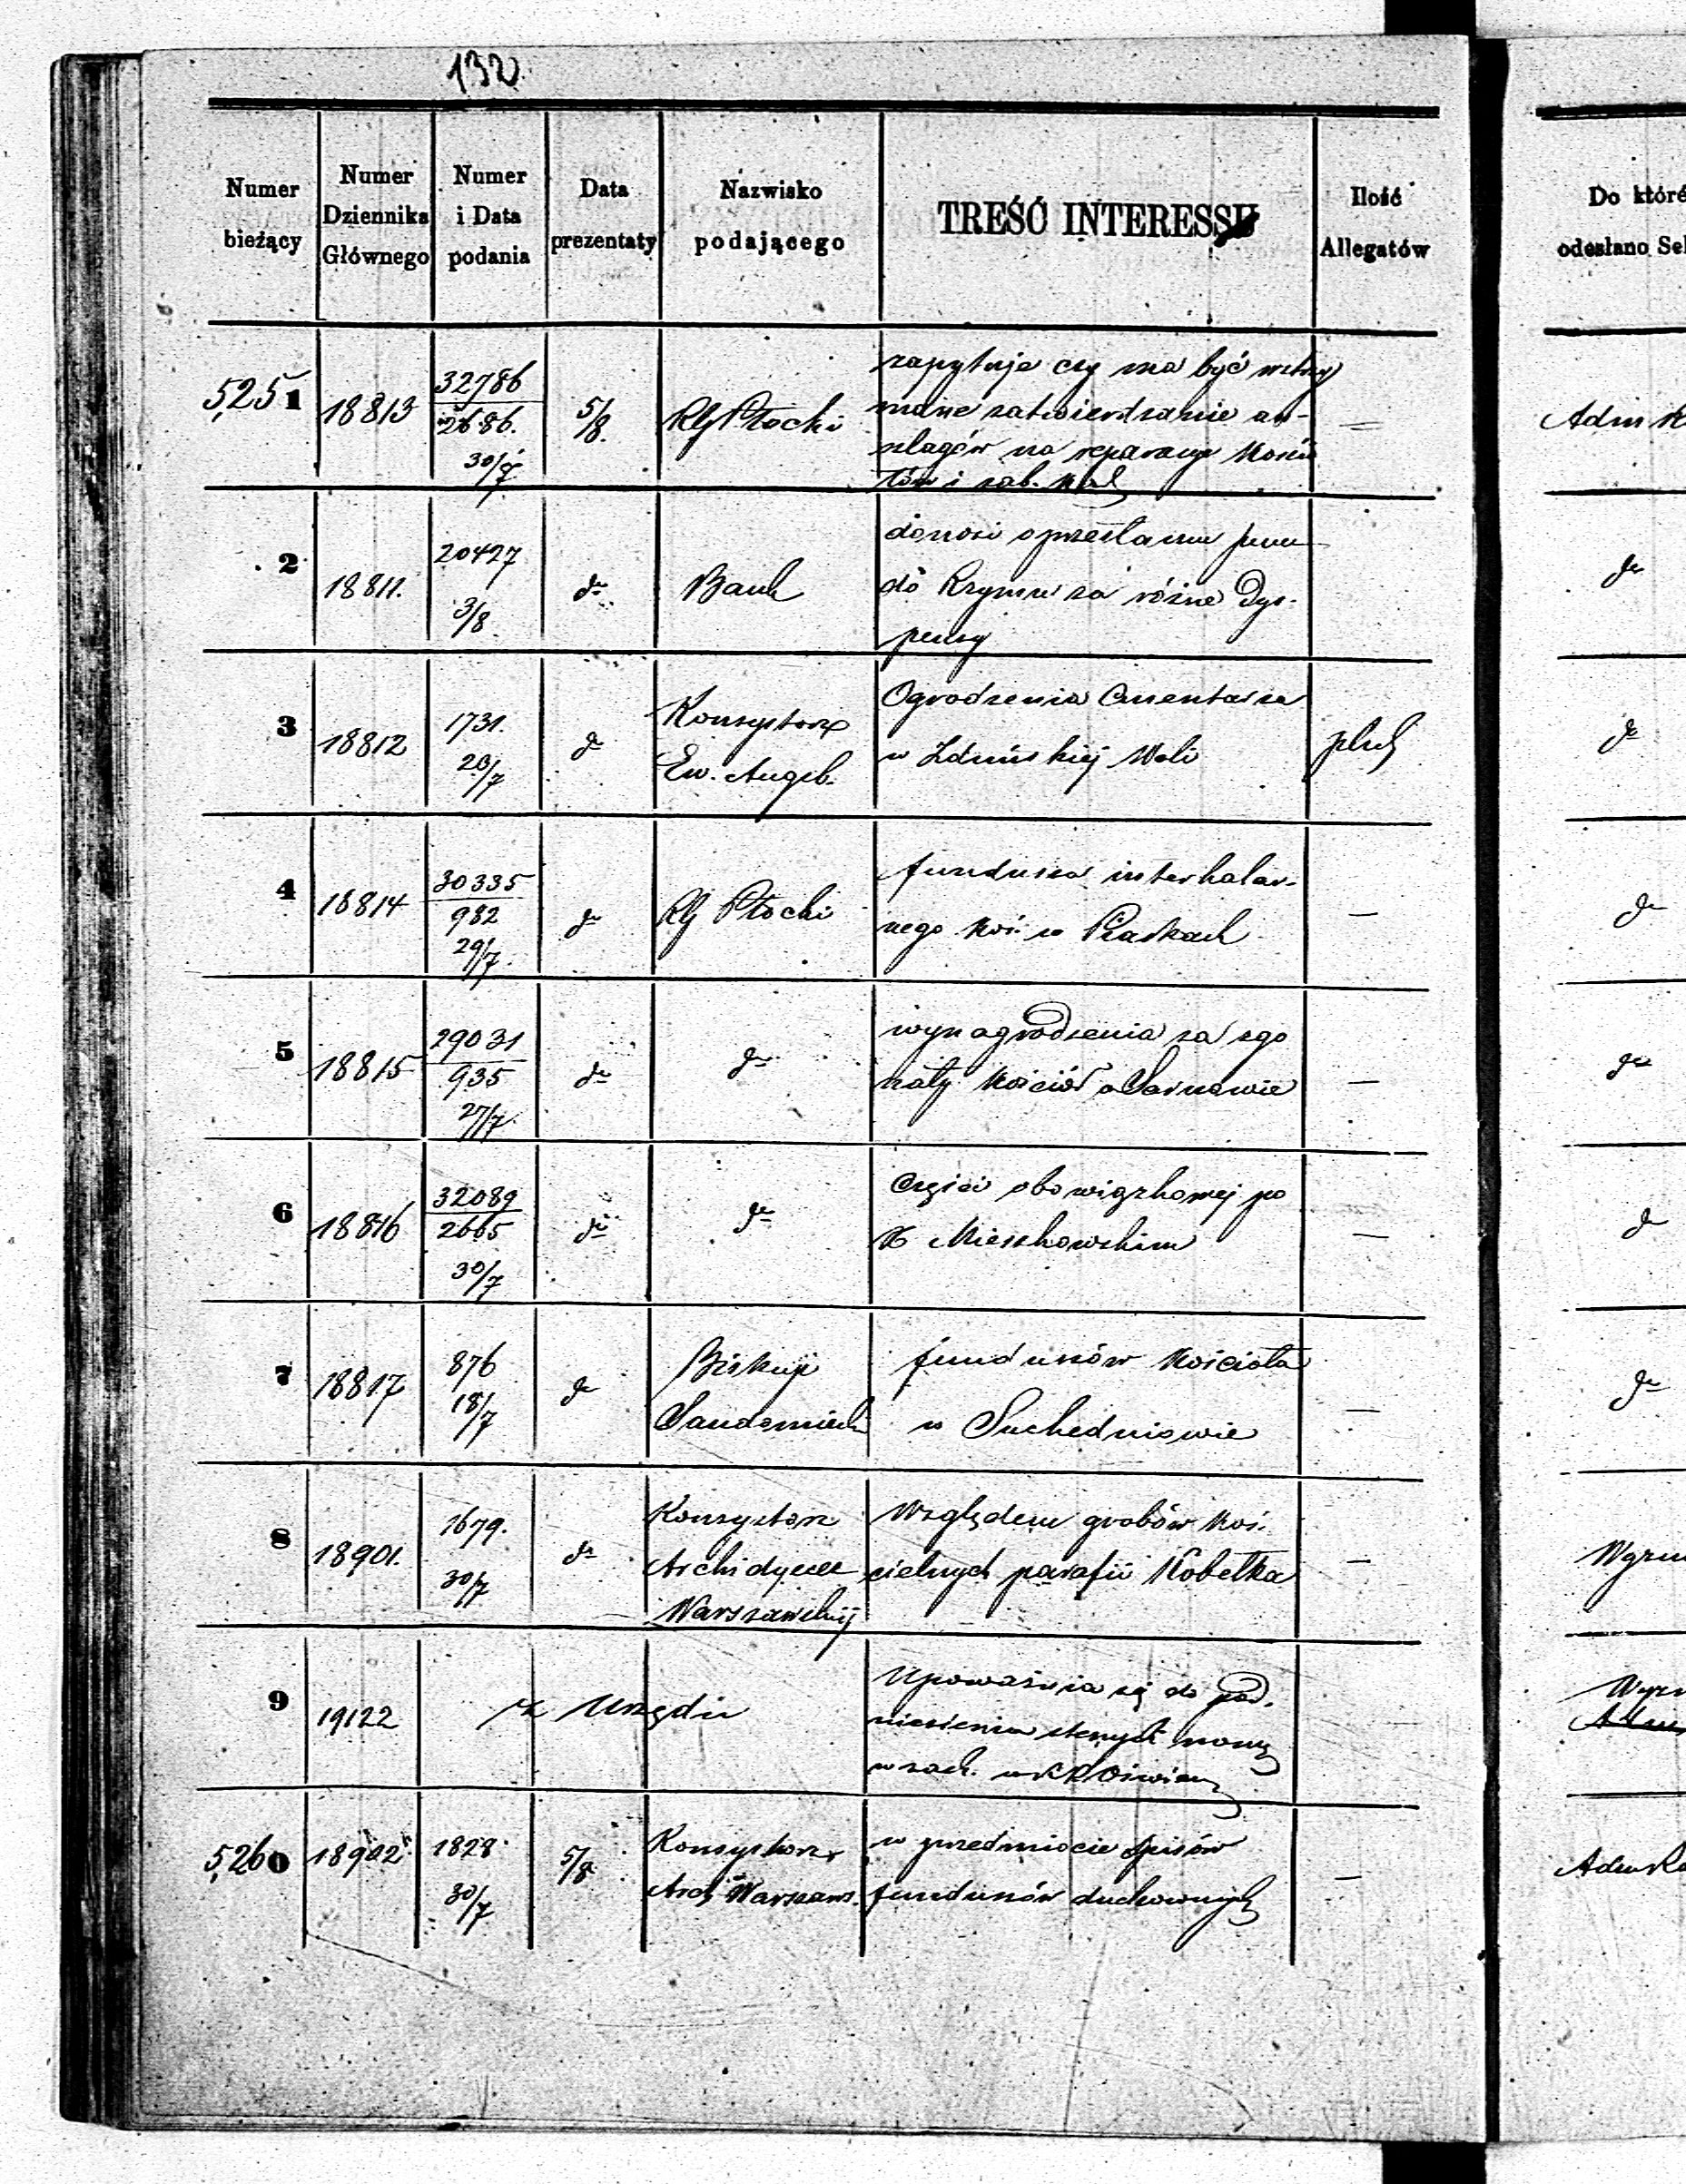 132
Numer bieżący
Numer Dziennika Głównego
Numer i Data podania
Data prezentaty
Nazwisko podającego
TREŚĆ INTERESSU
Ilość Allegatów
Do któré
odesłano Sek
5,251
18813
32786
2686.
30/7
5/8.
RG Płocki
zapytuje czy ma być wstrzy
mane zatwierdzanie an-
szlagów na reparacye Kościo
łów i zab.
—
Adm
2
18811.
20427
3/8
do
Bank
donosi o przesłaniu
do Rzymu za różne Dys-
pensy
do
3
18812
1731.
23/7
do
Konsystorz
Ew. Augsb.
Ogrodzenia Cmentarza
w Zduńskiéj Woli
plik
do
4
18814
30335
982
29/7.
do
RG Płocki
funduszu interkalar-
nego Koś: w Piaskach
—
do
5
18815
29031
935
27/7.
do
do
wynagrodzenia za zgo
rzały Kościół w Sarnowie
—
do
6
18816
32089
2665
30/7
do
do
Części obowiązkowej po
X Mieszkowskim
—
do
7
18817
876
18/7
do
Biskup
Sandomierski
funduszów Kościoła
w Suchedniowie
—
do
8
18901.
1679.
30/7
do
Konsystorz
Archidyec
Warszawskiej
Względem grobów Koś-
cielnych parafii Kobełka
—
Wyzn
9
19122
z Urzędu
Upoważnia się do pod-
niesienia
Wyzn
5,260
18902
1828
30/7
5/8
Konsystorz
Arch Warszaws.
w przedmiocie Spisów
funduszów duchownych
—
Adm